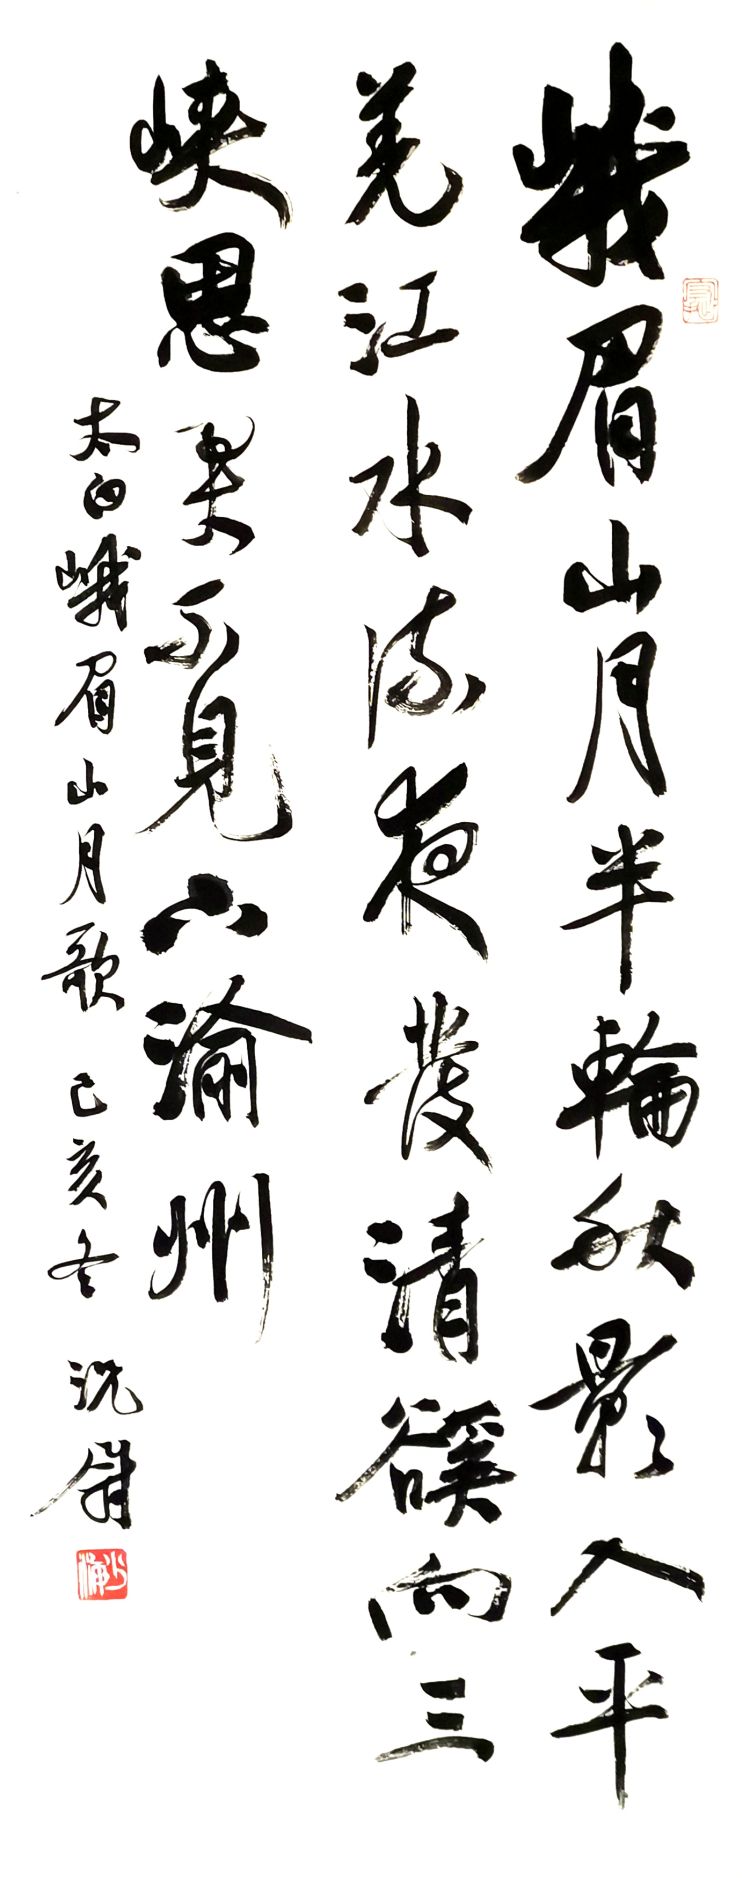 峨眉山月半輪秋影入平
羌江水流夜發清谿向三
峽思君不見下渝州
太白峨眉山月歌 己亥冬